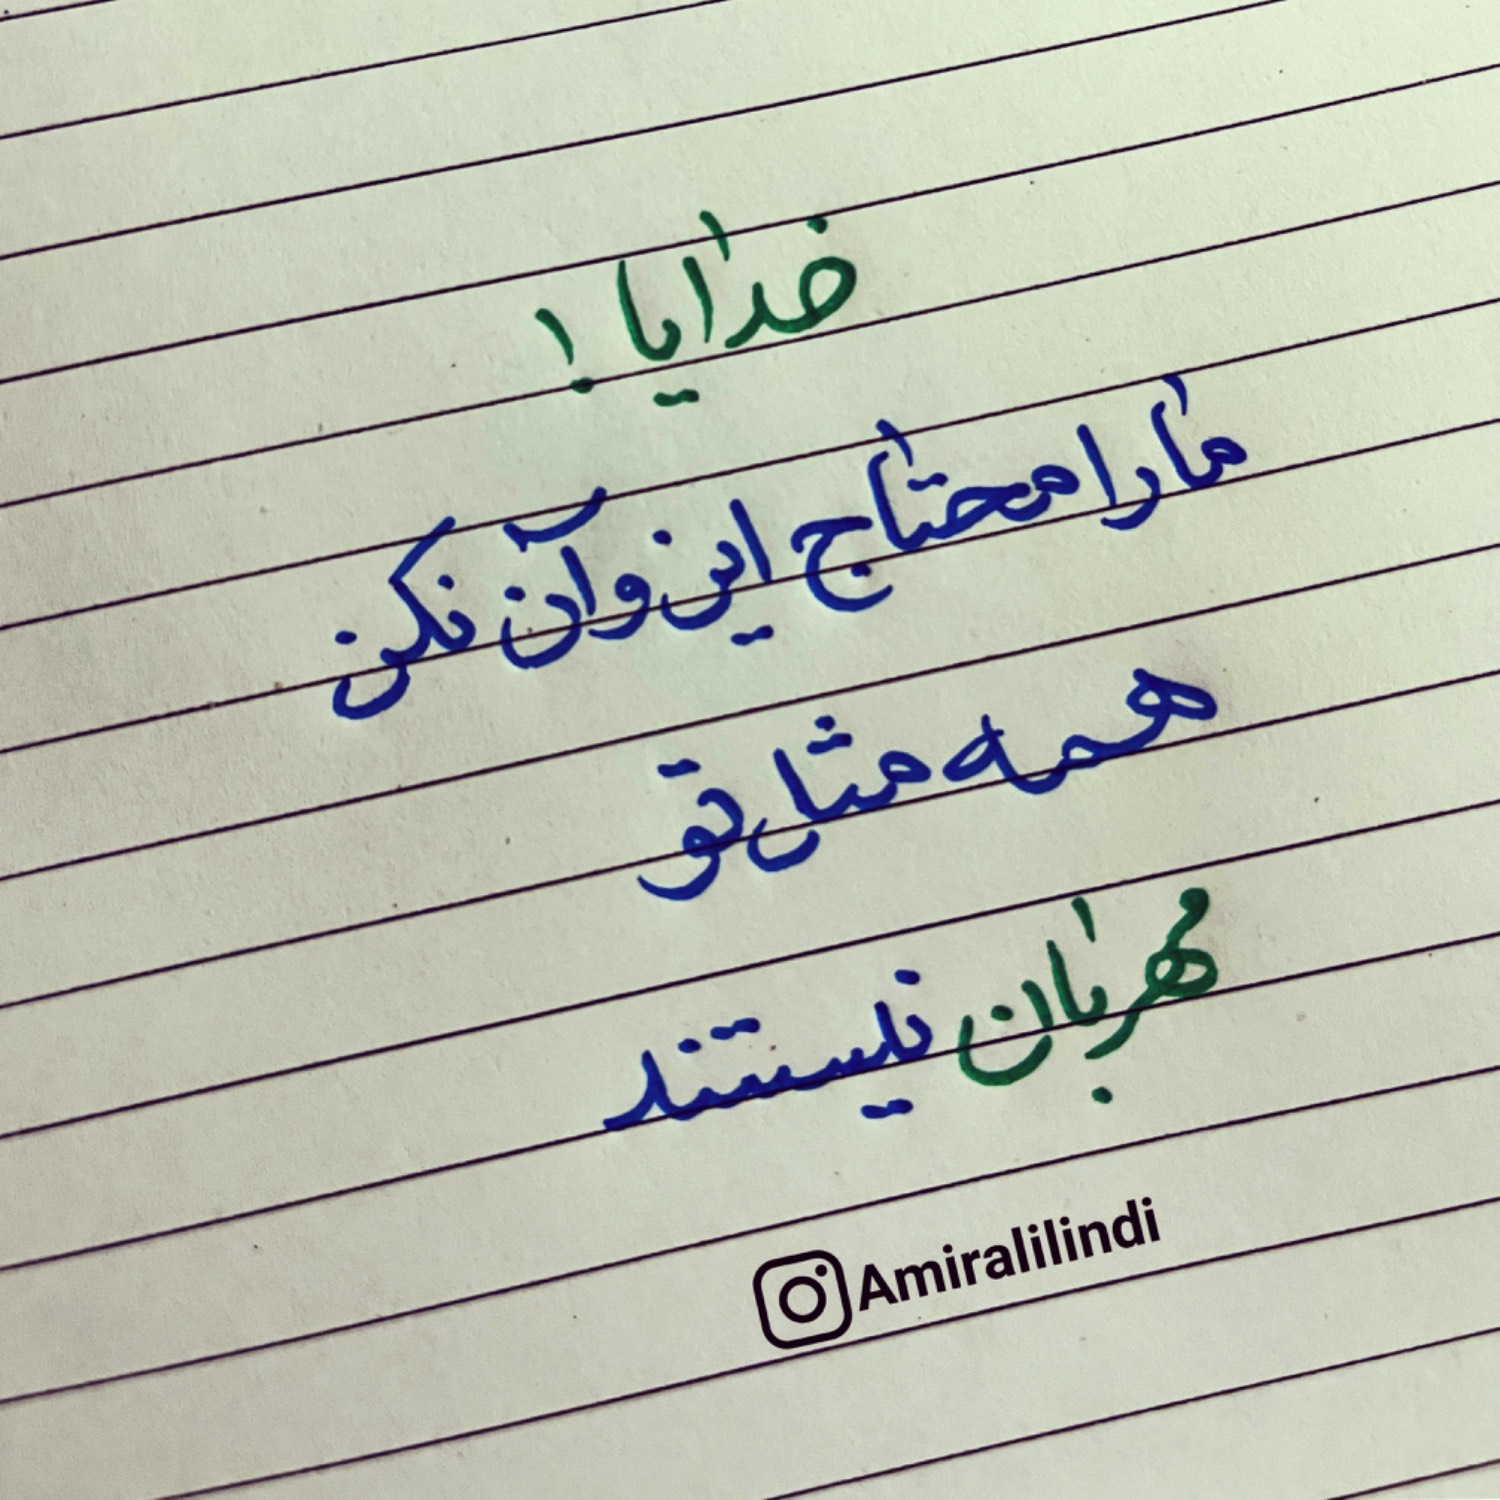 خدایا !
ما را محتاج این و آن نکن
همه مثل تو
مهربان نیستند
Amiralilindi